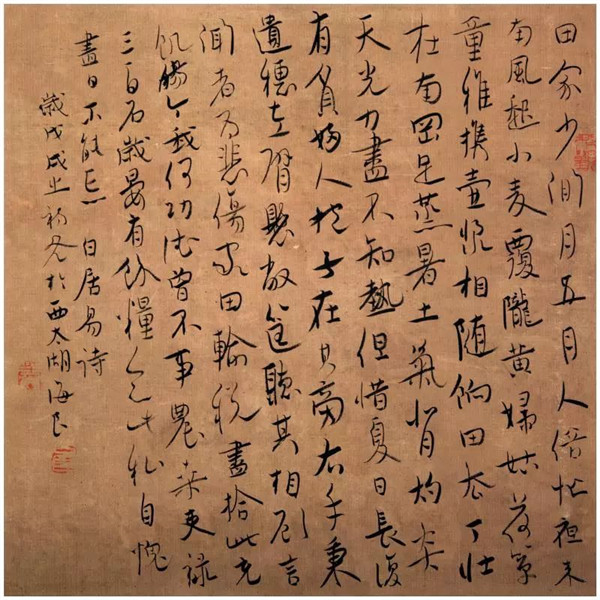 田家少閒月五月人倍忙夜来
南風起小麦覆隴黄婦姑荷簞
童稚携壶漿相随餉田去丁壮
在南罡足蒸暑土氣背灼炎
天光力盡不知熱但惜夏日長復
有貧婦人抱子在其旁右手秉
遺穗左臂懸敝筐聽其相顧言
聞者为悲傷家田輸税盡拾此充
飢腸今我何功德曾不事農桑吏禄
三百石歲晏有餘糧念此私自愧
盡日不能忘 白居易诗
歲戊戌之初冬於西太湖海